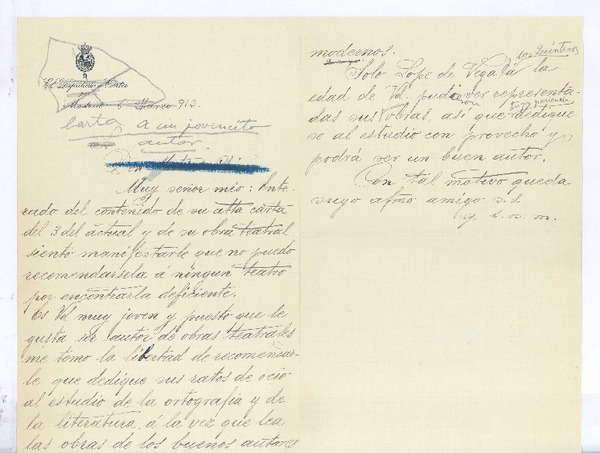 El Diputado a Cortes
Madrid 6 Marzo 913
Carta a un jovencito
autor
Muy señor mio: Ente-
rado del contenido de su atta carta
del 3 del actual y de su obra teatral
siento manifestarle que no puedo
recomendarsela á ningun teatro
por encontrarla deficiente.
Es Vd muy joven y puesto que le
gusta ser autor de obras teatrales
me tomo la libertad de recomendar-
le que dedique sus ratos de ocio
al estudio de la ortografia y de
la literatura, á la vez que lea
las obras de los buenos autores
modernos.
los Quinteros
Solo Lope de Vega á la
edad de Vd. pudieron ver representa-
das sus obras, asi que dedique
se al estudio con provecho y
podrá ser un buen autor.
Con tal motivo queda
suyo afmo amigo s. s.
q. b. s. m.